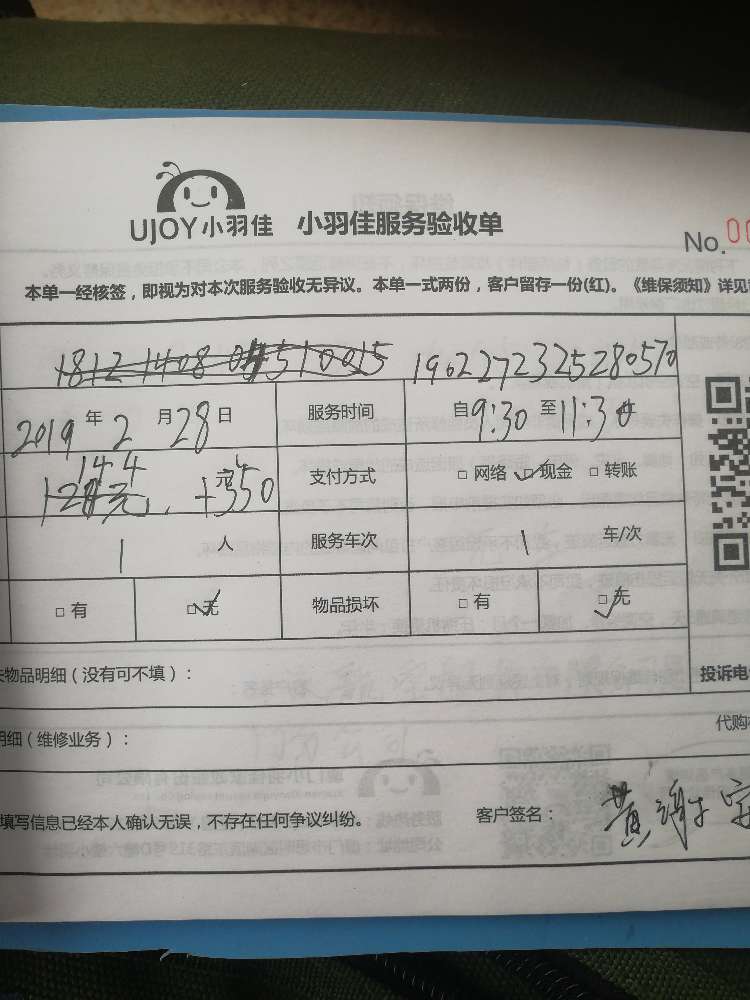 UJOY小羽佳 小羽佳服务验收单
No.00
本单一经核签，即视为对本次服务验收无异议。本单一式两份，客户留存一份(红)。《维保须知》详见
1902272325280570
2019年2月28日 服务时间 自9:30至11:30
144
元 +350 支付方式 □网络 □现金 □转账
1人 服务车次 1车/次
□有 □无 物品损坏 □有 □无
物品明细（没有可不填）：
投诉电
明细（维修业务）：
代购
填写信息已经本人确认无误，不存在任何争议纠纷。 客户签名：黄